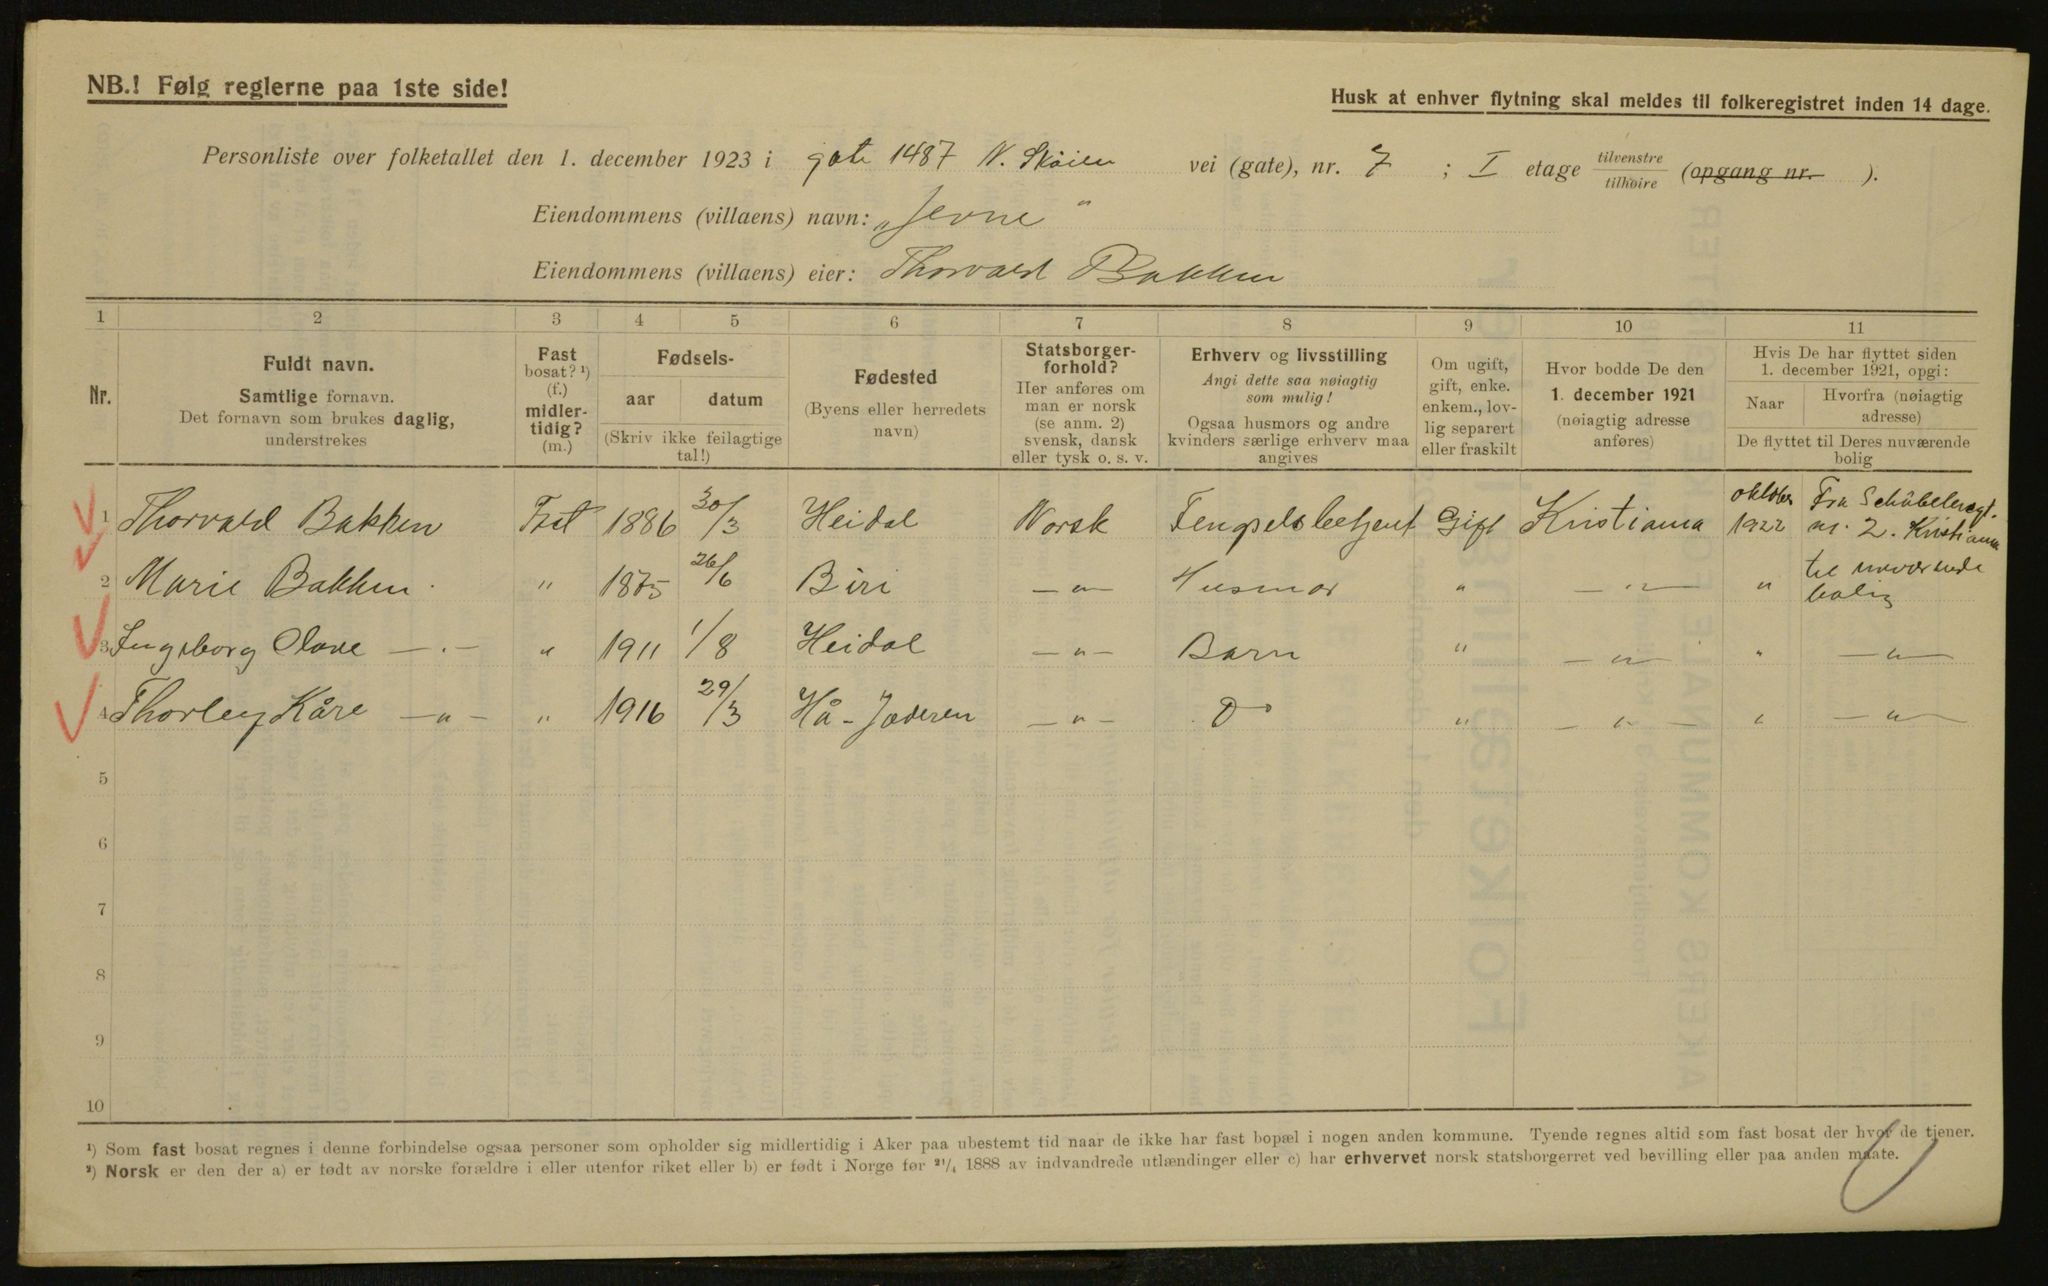 NB.! Følg reglerne paa 1ste side!
Husk at enhver flytning skal meldes til folkeregistret inden 14 dage.
Personliste over folketallet den 1. december 1923 i gate 1487 N. Skøien vei (gate), nr. 7 ; I etage tilvenstre / tilhøire (opgang nr. ).
Eiendommens (villaens) navn: „Jevne"
Eiendommens (villaens) eier: Thorvald Bakken
1 2 3 4 5 6 7 8 9 10 11
Nr.
Fuldt navn.
Samtlige fornavn.
Det fornavn som brukes daglig,
understrekes
Fast
bosat? ¹)
(f.)
midler-
tidig?
(m.)
Fødsels-
aar datum
(Skriv ikke feilagtige
tal!)
Fødested
(Byens eller herredets
navn)
Statsborger-
forhold?
Her anføres om
man er norsk
(se anm. 2)
svensk, dansk
eller tysk o. s. v.
Erhverv og livsstilling
Angi dette saa nøiagtig
som mulig!
Ogsaa husmors og andre
kvinders særlige erhverv maa
angives
Om ugift,
gift, enke.
enkem., lov-
lig separert
eller fraskilt
Hvor bodde De den
1. december 1921
(nøiagtig adresse
anføres)
Hvis De har flyttet siden
1. december 1921, opgi:
Naar
Hvorfra (nøiagtig
adresse)
De flyttet til Deres nuværende
bolig
1 Thorvald Bakken Fast 1886 30/3 Heidal Norsk Fengselsbetjent Gift Kristiania oktober 1922 Fra Schübelersgt. nr. 2. Kristiania
2 Marie Bakken " 1875 26/6 Biri —"— Husmor " —"— " til nuværende bolig
3 Ingeborg Olave —"— " 1911 1/8 Heidal —"— Barn " —"— " —"—
4 Thorleif Kåre —"— " 1916 29/3 Hå - Jæderen —"— Do " —"— " —"—
5
6
7
8
9
10
¹) Som fast bosat regnes i denne forbindelse ogsaa personer som opholder sig midlertidig i Aker paa ubestemt tid naar de ikke har fast bopæl i nogen anden kommune. Tyende regnes altid som fast bosat der hvor de tjener.
²) Norsk er den der a) er født av norske forældre i eller utenfor riket eller b) er født i Norge før ²¹/₄ 1888 av indvandrede utlændinger eller c) har erhvervet norsk statsborgerret ved bevilling eller paa anden maate.